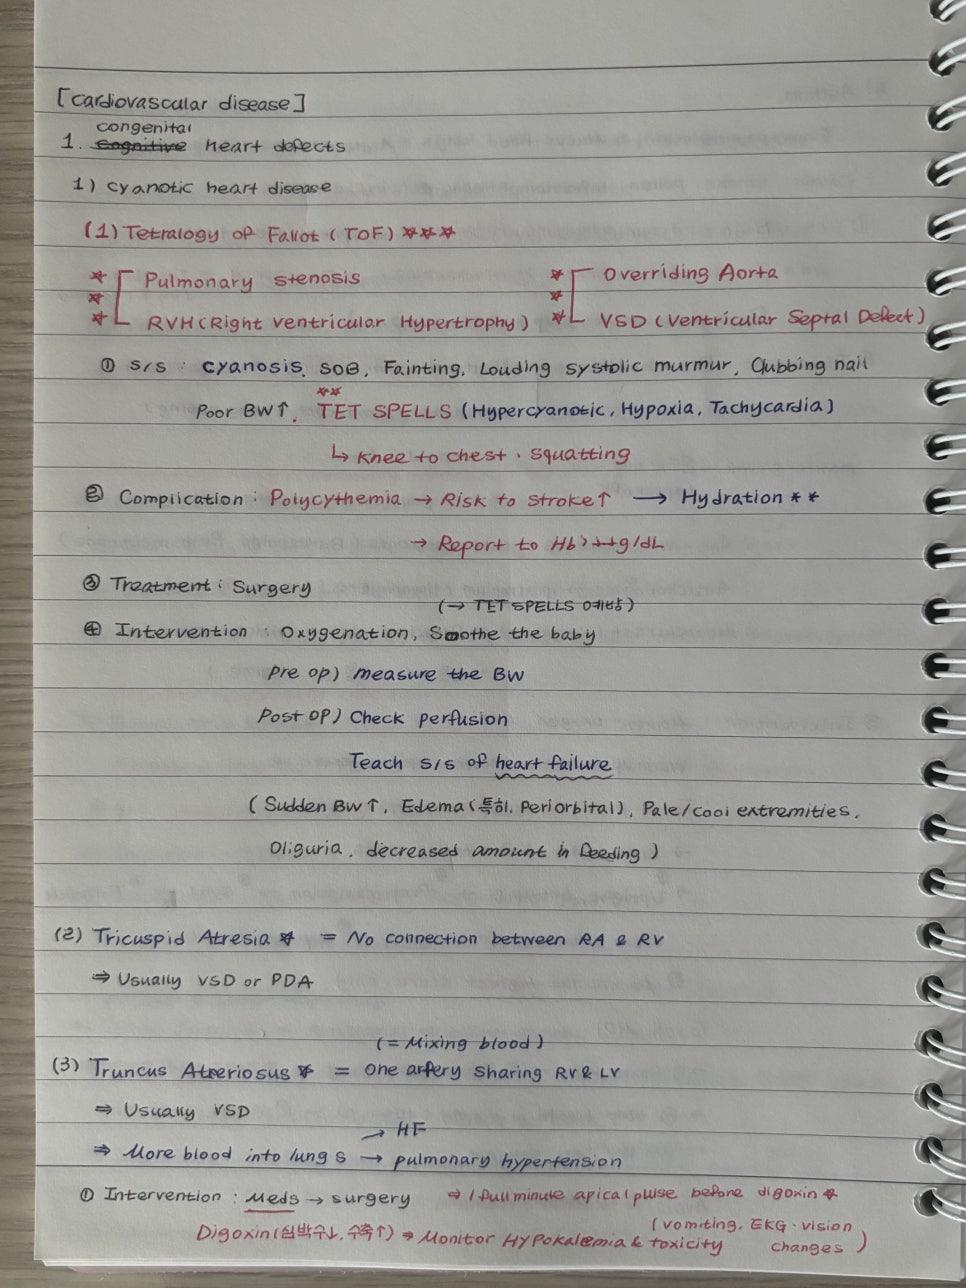 [cardiovascular disease]
congenital
1. cognitive heart defects
1) cyanotic heart disease
(1) Tetralogy of Fallot (TOF) ☆☆☆
☆ Pulmonary stenosis ☆ Overriding Aorta
☆ ☆
☆ RVH (Right ventricular Hypertrophy) ☆ VSD (Ventricular Septal Defect)
① s/s : cyanosis, SOB, Fainting, Louding systolic murmur, Clubbing nail
☆☆
Poor BW↑, TET SPELLS (Hypercyanotic, Hypoxia, Tachycardia)
↳ Knee to chest · squatting
② Complication : Polycythemia → Risk to stroke↑ → Hydration * *
→ Report to Hb> g/dL
③ Treatment : Surgery
(→ TET SPELLS 예방)
④ Intervention : Oxygenation, Soothe the baby
Pre op) measure the BW
Post op) Check perfusion
Teach s/s of heart failure
(Sudden BW↑, Edema (특히, Periorbital), Pale/cool extremities,
Oliguria, decreased amount in feeding)
(2) Tricuspid Atresia ☆ = No connection between RA & RV
⇒ Usually VSD or PDA
(= Mixing blood)
(3) Truncus Atreriosus ☆ = One artery sharing RV & LV
⇒ Usually VSD
→ HF
⇒ More blood into lungs → pulmonary hypertension
① Intervention : Meds → surgery ⇒ 1 full minute apical pulse before digoxin ☆
Digoxin (심박수↓, 수축↑) ⇒ Monitor Hypokalemia & toxicity (vomiting, EKG · vision changes)